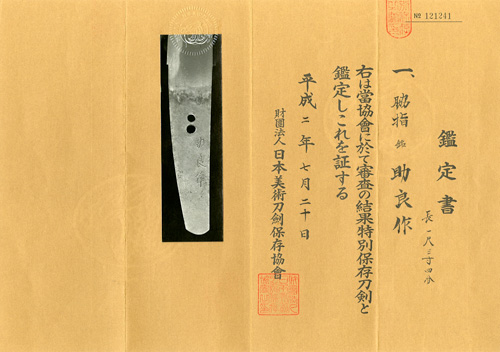 № 121241
鑑定書
一、脇指 銘 助良作
長 一尺三寸四分
右は當協會に於て審査の結果特別保存刀剣と
鑑定しこれを証する
平成二年七月二十日
財團法人 日本美術刀剣保存協會
助良作